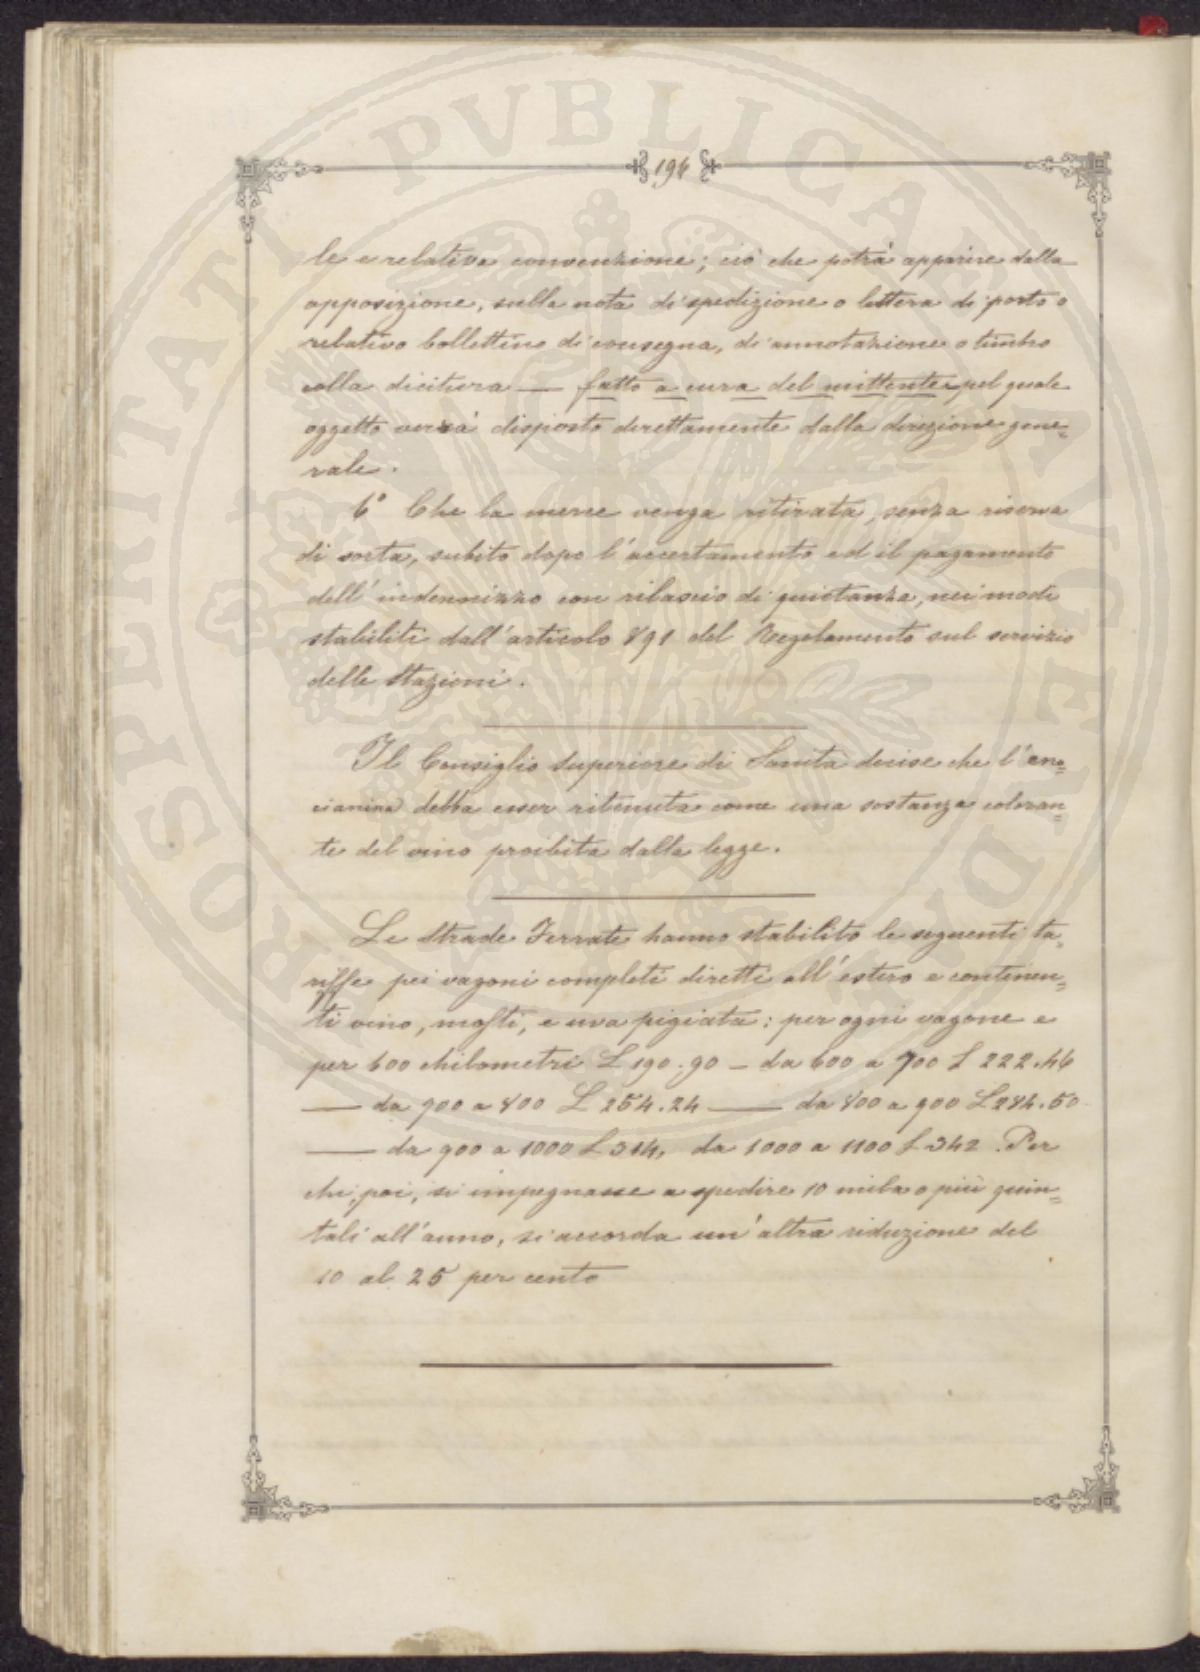 194
le e relativa convenzione; ciò che potrà apparire dalla
apposizione, sulla nota di spedizione o lettera di porto o
relativo bollettino di consegna, di annotazione o timbro
colla dicitura — fatto a cura del mittente, pel quale
oggetto verrà disposto direttamente dalla direzione gene=
rale.
6° Che la merce venga ritirata, senza riserva
di sorta, subito dopo l'accertamento ed il pagamento
dell'indennizzo con rilascio di quietanza, nei modi
stabiliti dall'articolo 891 del Regolamento sul servizio
delle Stazioni.
Il Consiglio Superiore di Sanità decise che l'eno=
cianina debba esser ritenuta come una sostanza coloran=
te del vino proibita dalla legge.
Le Strade Ferrate hanno stabilito le seguenti ta=
riffe pei vagoni completi diretti all'estero e contenen=
ti vino, mosti, e uva pigiata: per ogni vagone e
per 600 chilometri L 190.90 — da 600 a 700 L 222.46
— da 700 a 800 L 254.24 — da 800 a 900 L 284.50
— da 900 a 1000 L 314, da 1000 a 1100 L 342. Per
chi, poi, si impegnasse a spedire 10 mila o più quin=
tali all'anno, si accorda un'altra riduzione del
10 al 25 per cento
PROSPERITATI PVBLICAE AVGENDAE